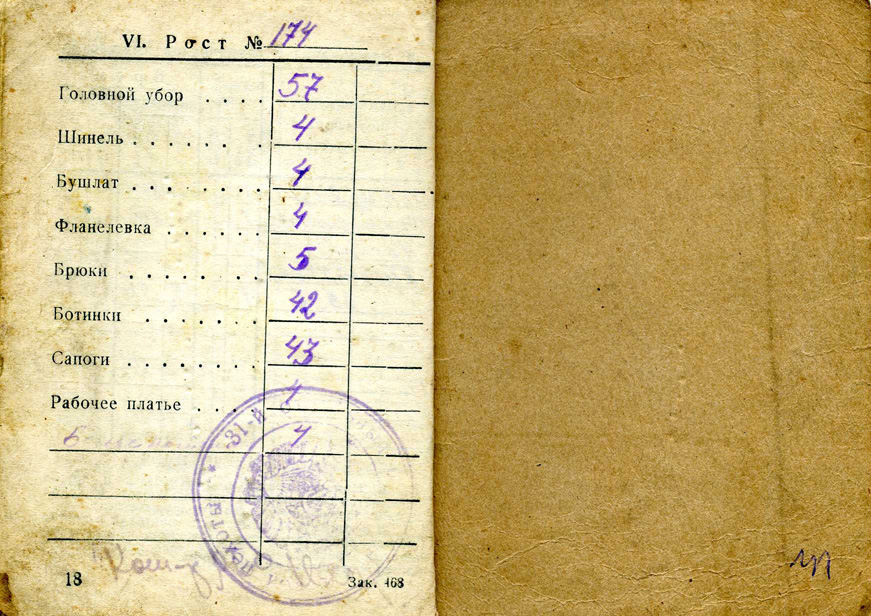 VI. Рост № 174
Головной убор . . . . 57
Шинель . . . . . . . 4
Бушлат . . . . . . . 4
Фланелевка . . . . . . 4
Брюки . . . . . . . 5
Ботинки . . . . . . . 42
Сапоги . . . . . . . . 43
Рабочее платье . . . . 4
4
31-й
18
Зак. 468